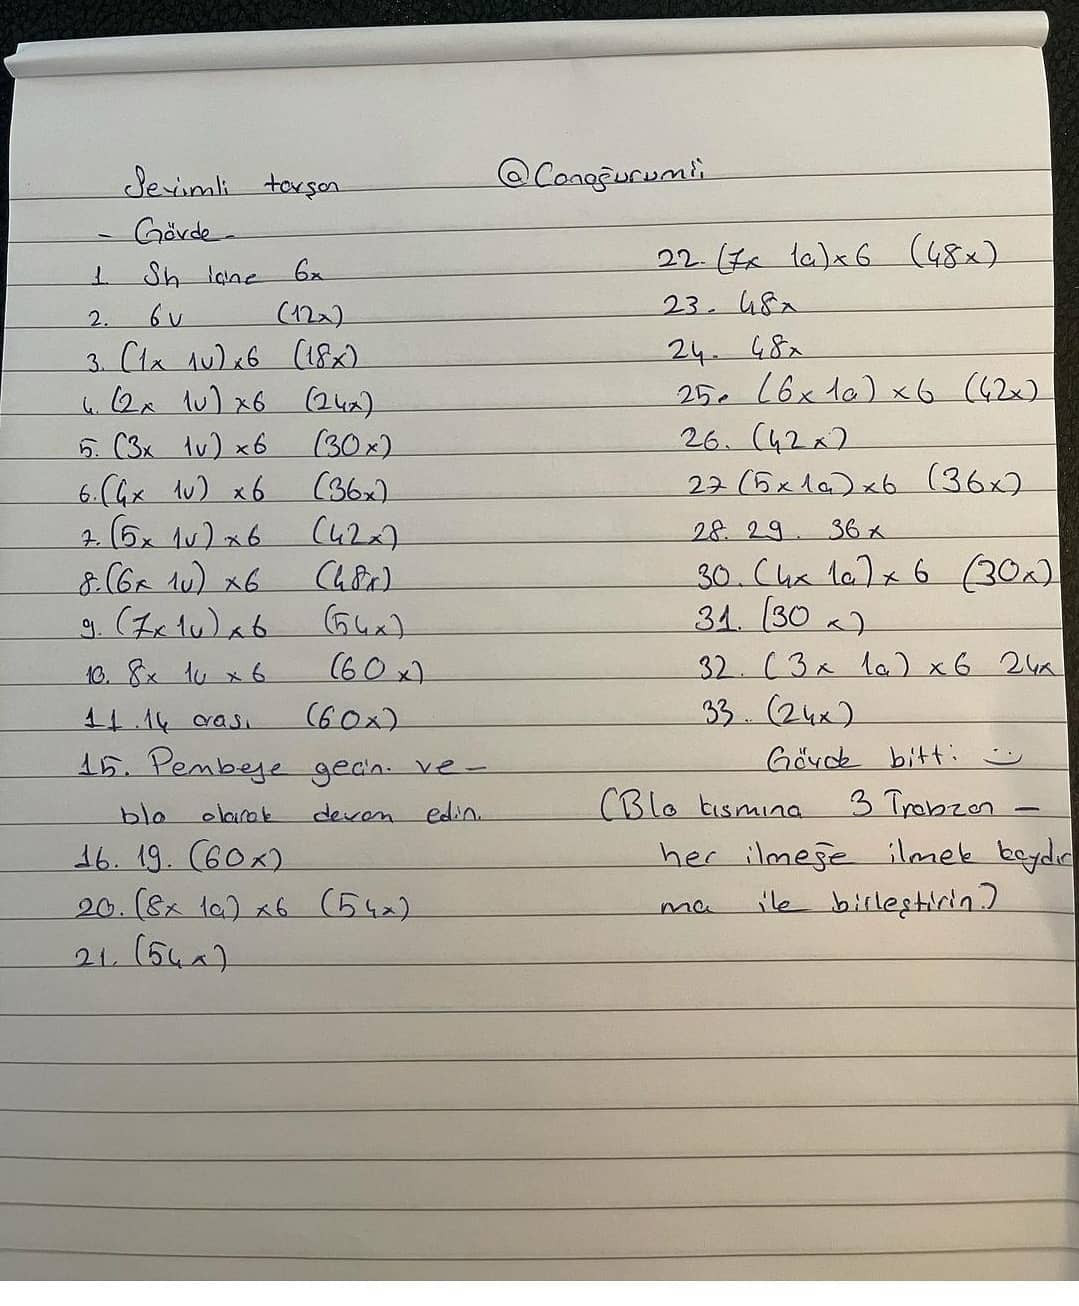 Sevimli tavşan
@Canagurumii
- Gövde -
1. Sh içine 6x
2. 6v (12x)
3. (1x 1v)x6 (18x)
4. (2x 1v) x6 (24x)
5. (3x 1v) x6 (30x)
6. (4x 1v) x6 (36x)
7. (5x 1v) x6 (42x)
8. (6x 1v) x6 (48x)
9. (7x 1v) x6 (54x)
10. 8x 1v x6 (60x)
11.14 arası (60x)
15. Pembeye geçin. ve -
blo olarak devam edin.
16. 19. (60x)
20. (8x 1a) x6 (54x)
21. (54x)
22. (7x 1a)x6 (48x)
23. 48x
24. 48x
25. (6x 1a) x6 (42x)
26. (42x)
27 (5x1a)x6 (36x)
28. 29. 36x
30. (4x 1a)x 6 (30x)
31. (30 x)
32. (3x 1a) x6 24x
33. (24x)
Gövde bitti :)
(Blo kısmına 3 Trabzan -
her ilmeğe ilmek kaydır
ma ile birleştirin.)